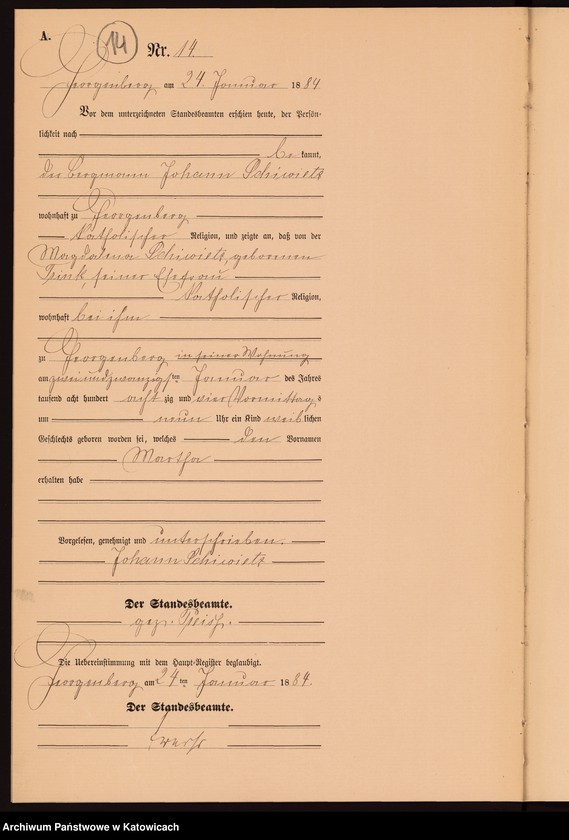 A.
14
Nr. 14.
Georgenberg am 24. Januar 1884
Vor dem unterzeichneten Standesbeamten erschien heute, der Persön-
lichkeit nach
bekannt,
der Bergmann Johann
wohnhaft zu Georgenberg
katholischer Religion, und zeigte an, daß von der
Magdalena geborenen
seiner Ehefrau
katholischer Religion,
wohnhaft bei ihm
zu Georgenberg in seiner Wohnung
am zwei und zwanzigsten Januar des Jahres
tausend acht hundert achtzig und vier Vormittags
um neun Uhr ein Kind weiblichen
Geschlechts geboren worden sei, welches den Vornamen
Martha
erhalten habe
Vorgelesen, genehmigt und unterschrieben.
Johann
Der Standesbeamte.
gez.
Die Uebereinstimmung mit dem Haupt-Register beglaubigt.
Georgenberg am 24ten Januar 1884.
Der Standesbeamte.
Archiwum Państwowe w Katowicach